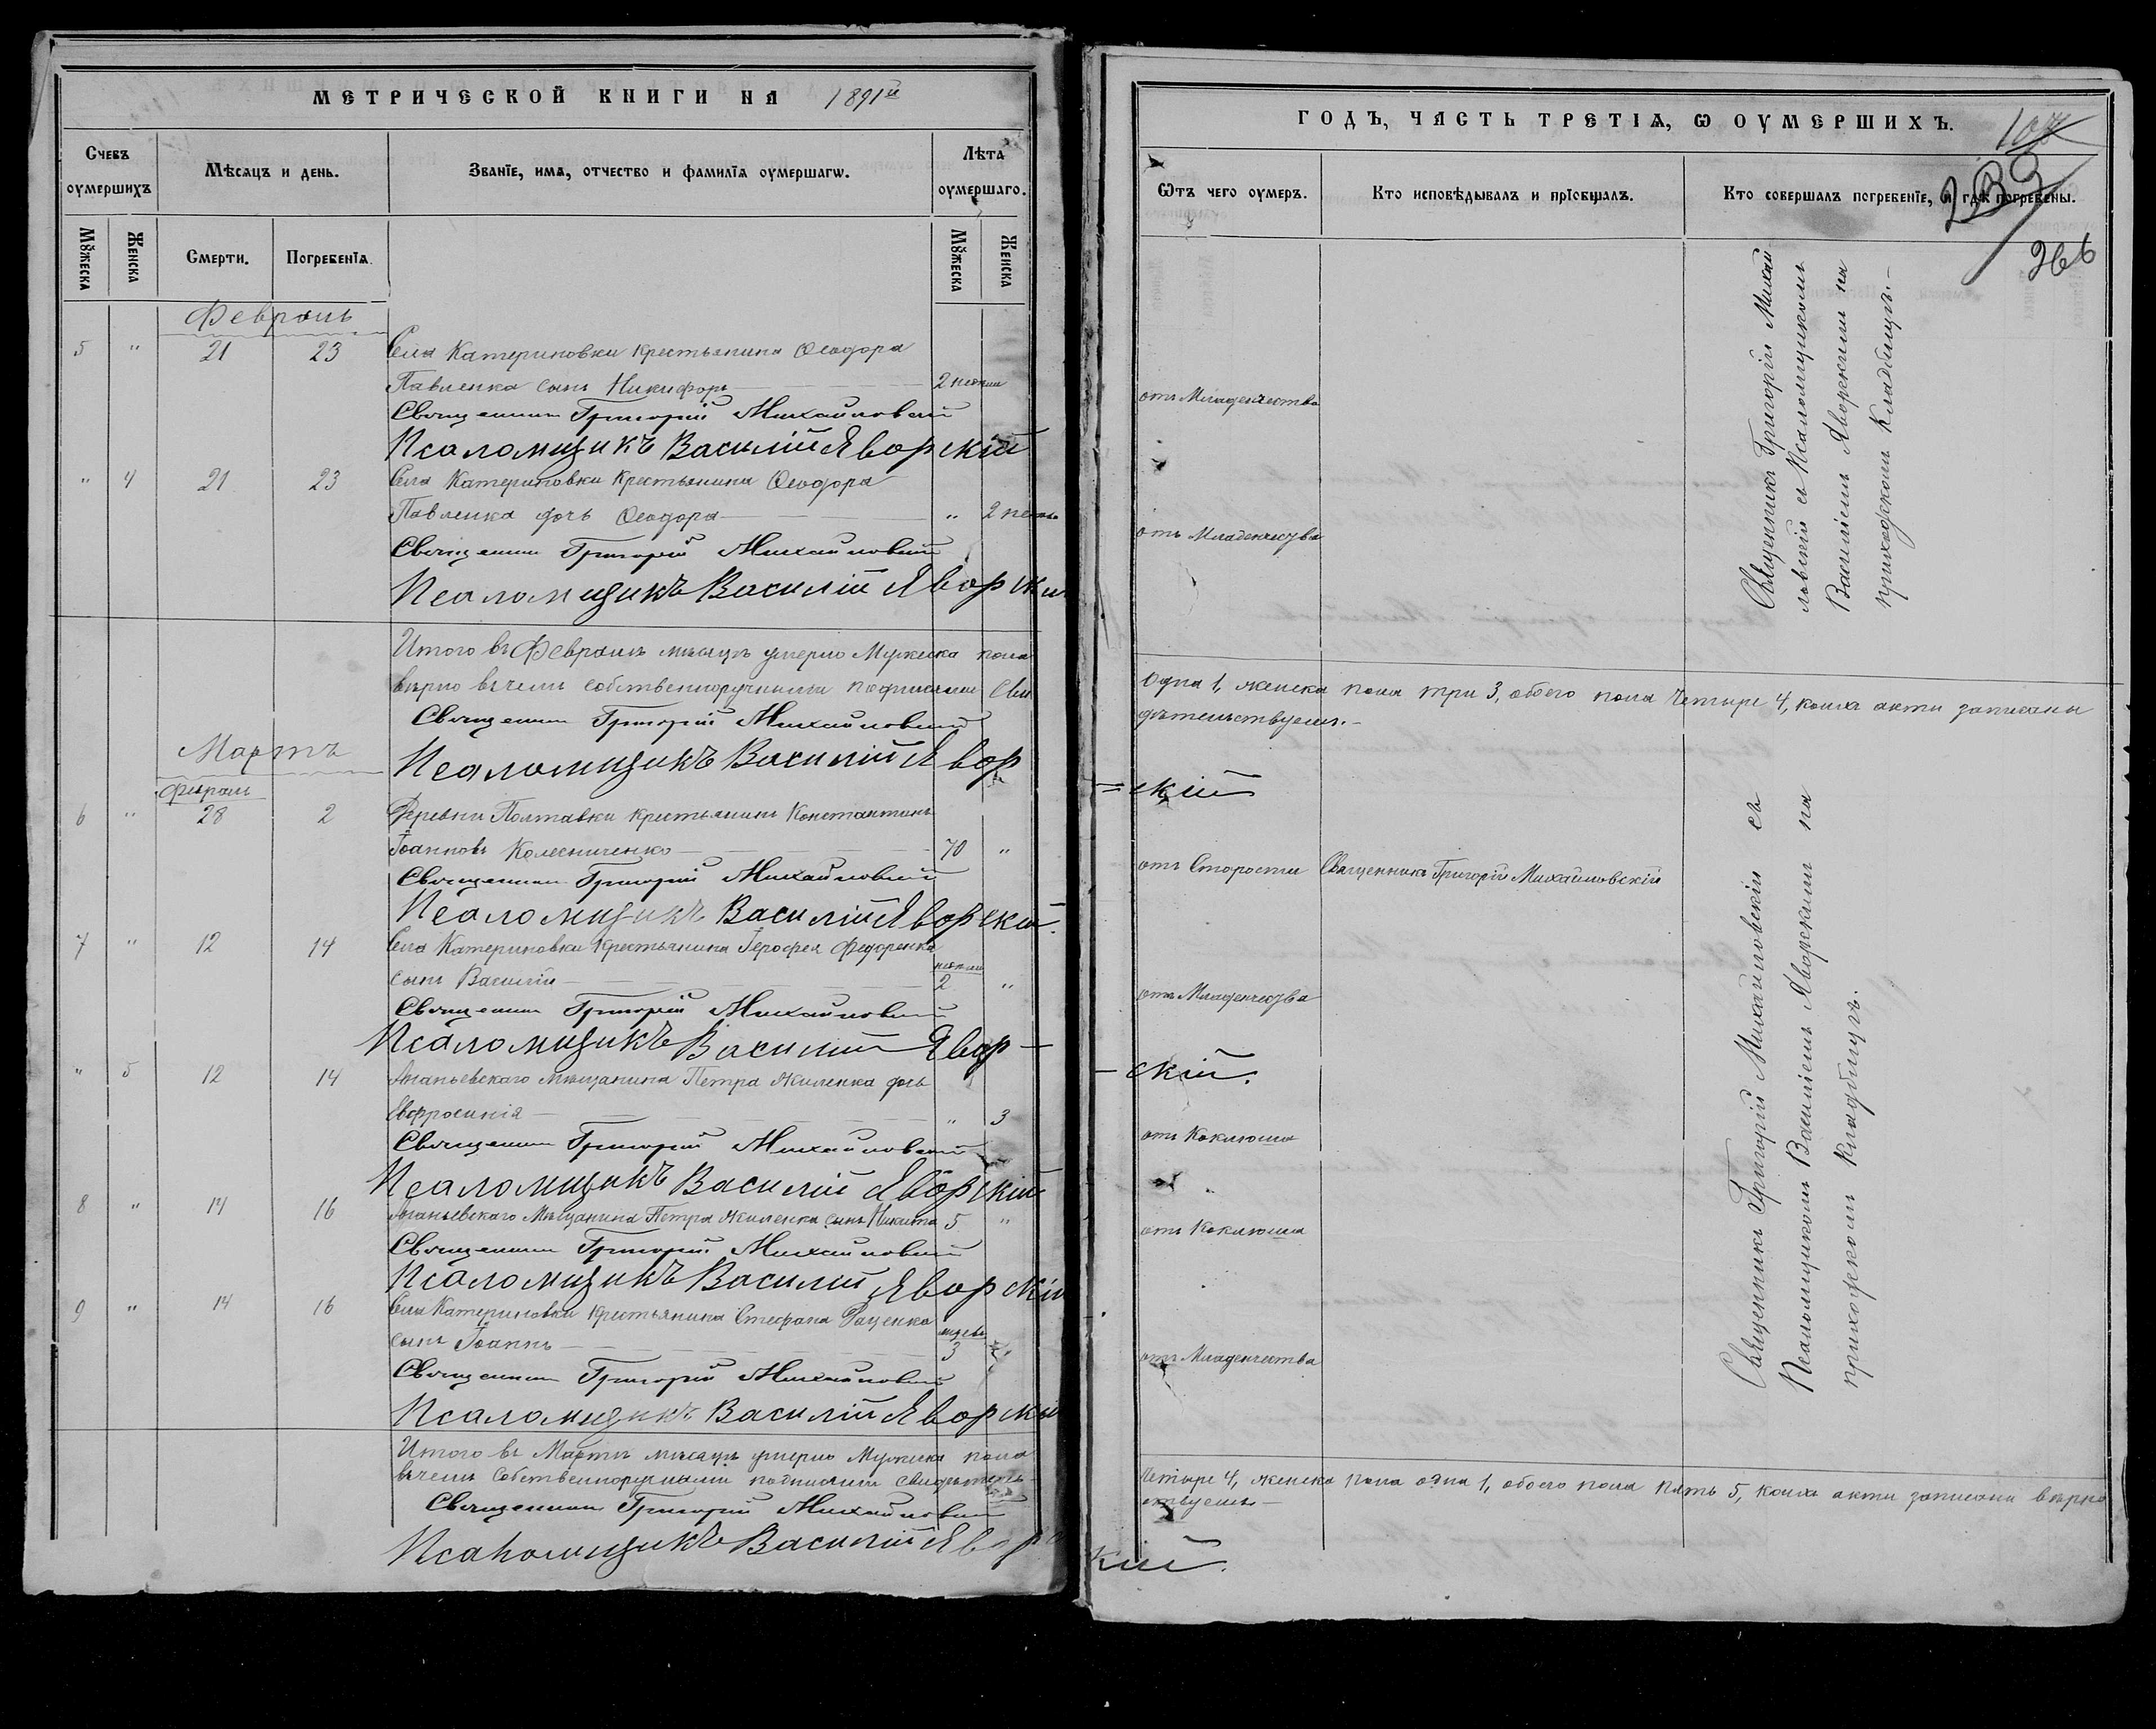 МЕТРИЧЕСКОЙ КНИГИ НА 1891й
Счевъ оумершихъ
Мѣсяцъ и день.
Званїе, имя, отчество и фамилїя оумершагѡ.
Лѣта оумершаго.
Мꙋжеска
Женска
Смерти.
Погребенїя.
Мꙋжеска
Женска
Февраль
5 " 21 23 Села Катериновки крестьянина Ѳеодора
Павленка сынъ Никифоръ 2 недѣли
Священникъ Григорій Михайловскій
Псаломщикъ Василій Яворскій
" 4 21 23 Села Катериновки крестьянина Ѳеодора
Павленка дочь Ѳеодора " 2 недѣли
Священникъ Григорій Михайловскій
Псаломщикъ Василій Яворскій
Итого въ Февралѣ мѣсяцѣ умерло Мужеска пола
вѣрно въ чемъ собственноручными подписями сви
Священникъ Григорій Михайловскій
Псаломщикъ Василій Явор
Мартъ
Февраль
6 " 28 2 Деревни Полтавки крестьянинъ Константинъ
Іоанновъ Колесниченко 70 "
Священникъ Григорій Михайловскій
Псаломщикъ Василій Яворскій.
7 " 12 14 Села Катериновки крестьянина Іерофея Федоренка
сынъ Василій недѣли 2 "
Священникъ Григорій Михайловскій
Псаломщикъ Василий Явор-
" 5 12 14 Ананьевскаго мѣщанина Петра Жиленка дочь
Евфросинія " 3
Священникъ Григорій Михайловскій
Псаломщикъ Василій Яворскій
8 " 14 16 Ананьевскаго Мѣщанина Петра Жиленка сынъ Никита 5 "
Священникъ Григорій Михайловскій
Псаломщикъ Василій Яворскій
9 " 14 16 Села Катериновки крестьянина Стефана
сынъ Іоаннъ 3 "
Священникъ Григорій Михайловскій
Псаломщикъ Василій Яворскій
Итого въ Мартѣ мѣсяцѣ умерло Мужеска пола
въ чемъ собственноручными подписями свидѣтель-
Священникъ Григорій Михайловскій
Псаломщикъ Василій Явор
ГОДЪ, ЧАСТЬ ТРЕТІѦ, Ѡ ОУМЕРШИХЪ.
266
Ѿтъ чего оумеръ.
Кто исповѣдывалъ и прїобщалъ.
Кто совершалъ погребенїе, и гдѣ погребены.
отъ Младенчества
отъ Младенчества
Священникъ Григорій Михай
ловскій съ Псаломщикомъ
Василіемъ Яворскимъ на
приходскомъ кладбищѣ.-
одна 1, женска пола три 3, обоего пола четыре 4, коихъ акты записаны
дѣтельствуемъ.-
=скій
отъ Старости Священникъ Григорій Михайловскій
отъ Младенчества
-скій.
отъ Коклюша
отъ Коклюша
отъ Младенчества
Священникъ Григорій Михайловскій съ
Псаломщикомъ Василіемъ Яворскимъ на
приходскомъ кладбищѣ.
четыре 4, женска пола одна 1, обоего пола пять 5, коихъ акты записаны вѣрно
ствуемъ.-
кій.